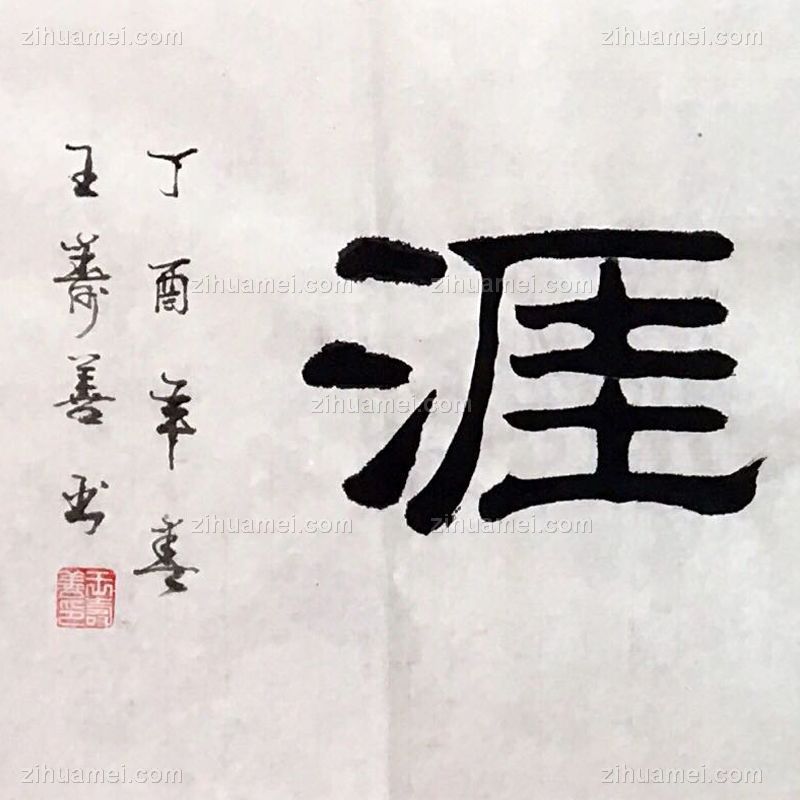 涯
丁酉年春
王寿善书
王寿善印
zihuamei.com zihuamei.com
zihuamei.com zihuamei.com
zihuamei.com
zihuamei.com zihuamei.com
zihuamei.com zihuamei.com